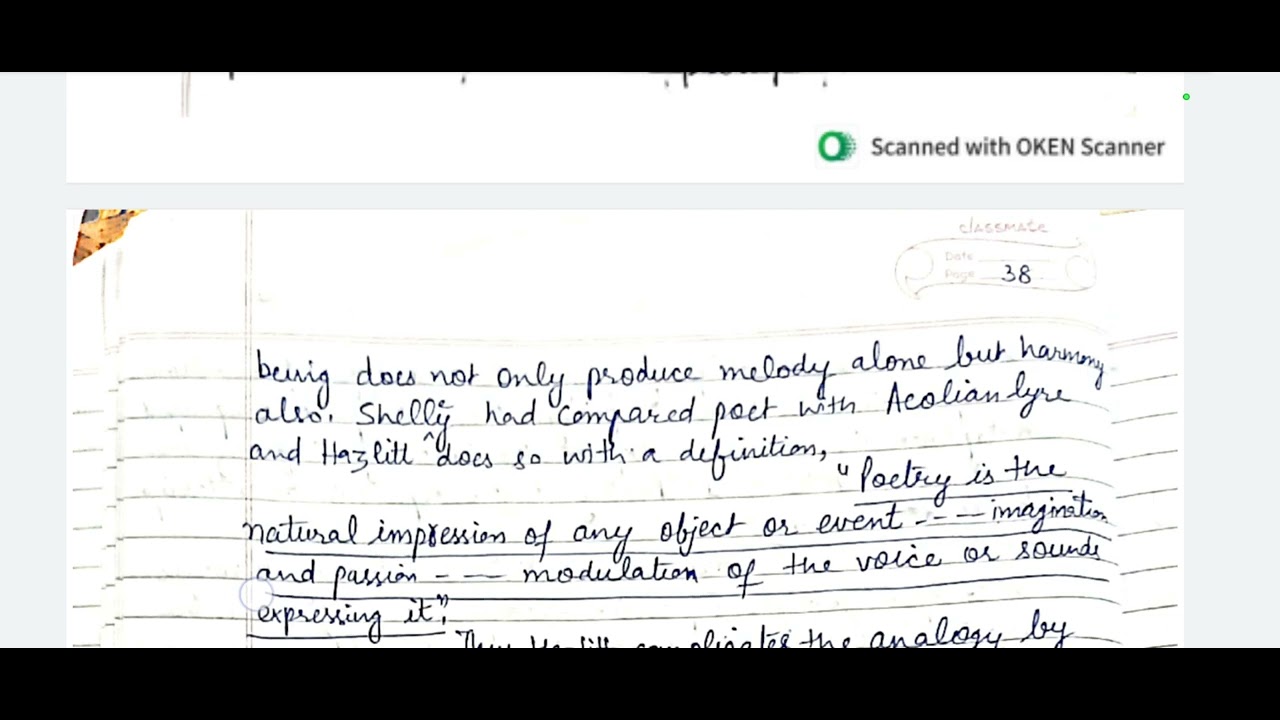 Scanned with OKEN Scanner
classmate
Date
Page 38
being does not only produce melody alone but harmony
also. Shelly had compared poet with Aeolian lyre
and Hazlitt ^ does so with a definition,
"Poetry is the
natural impression of any object or event - - — imagination
and passion - — modulation of the voice or sounds
expressing it".
Thus Hazlitt complicates the analogy by